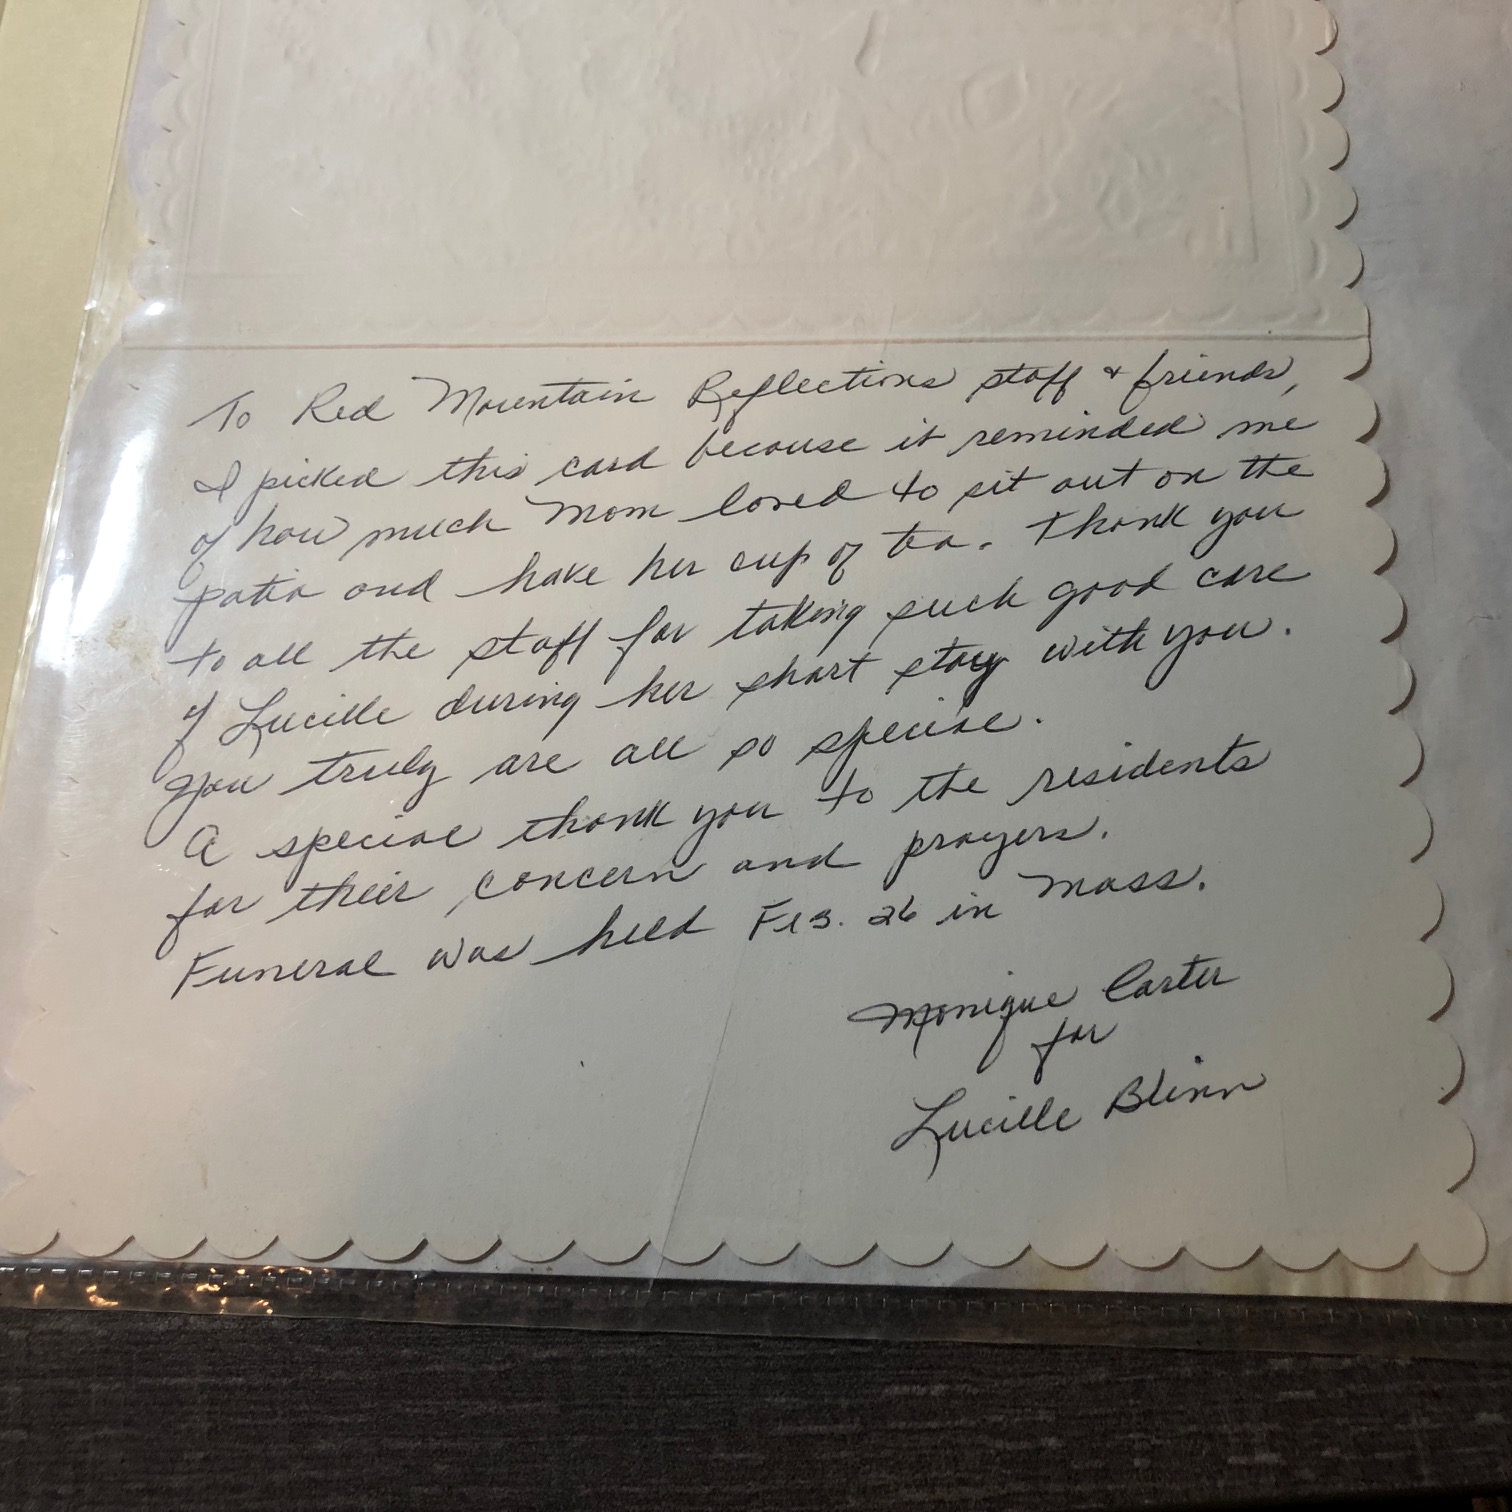 To Red Mountain Reflections staff & friends,
I picked this card because it reminded me
of how much Mom loved to sit out on the
patio and have her cup of tea. Thank you
to all the staff for taking such good care
of Lucille during her short stay with you.
You truly are all so special.
A special thank you to the residents
for their concern and prayers.
Funeral was held Feb. 26 in Mass.
Monique Carter
for
Lucille Blinn